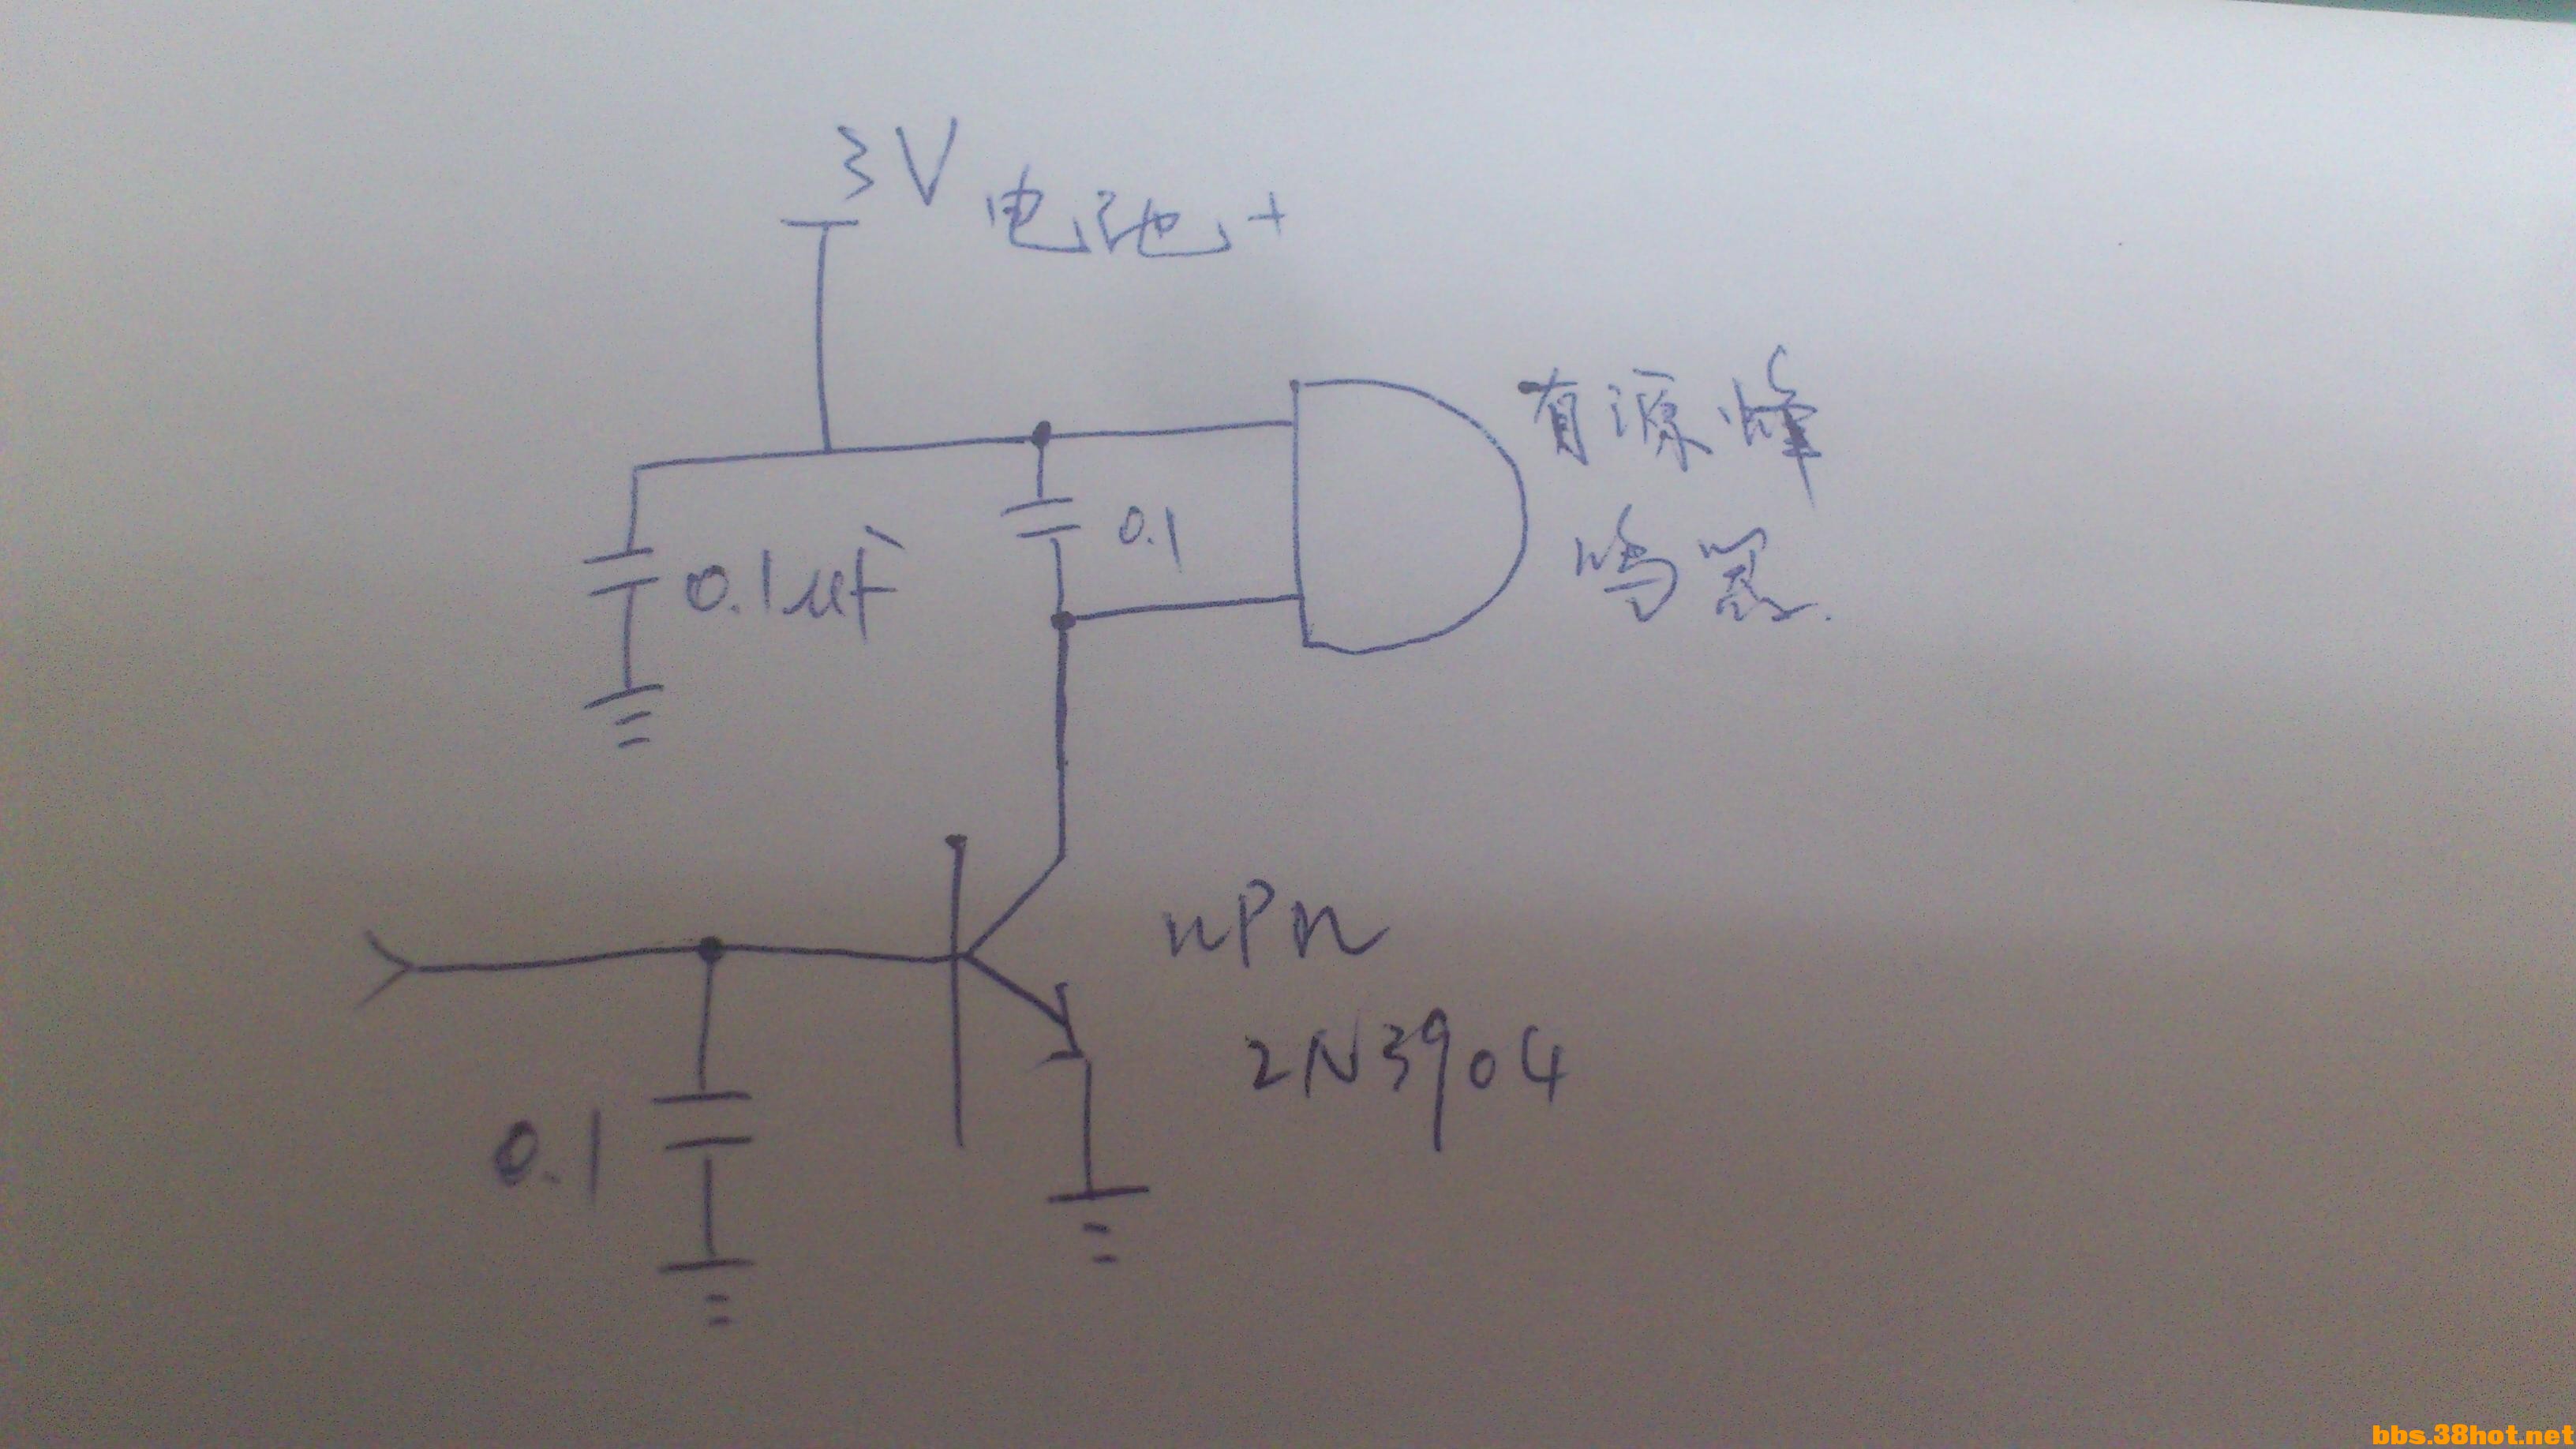 3V 电池+
有源蜂
鸣器.
0.1
0.1uF
nPn
2N3904
0.1
bbs.38hot.net